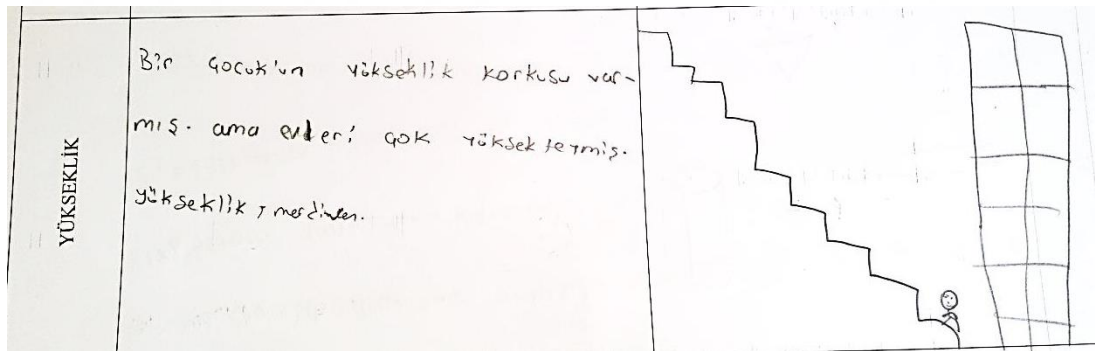 YÜKSEKLİK
Bir Çocuk'un yükseklik korkusu var-
mış. ama evleri çok yüksekteymiş.
yükseklik, merdiven.